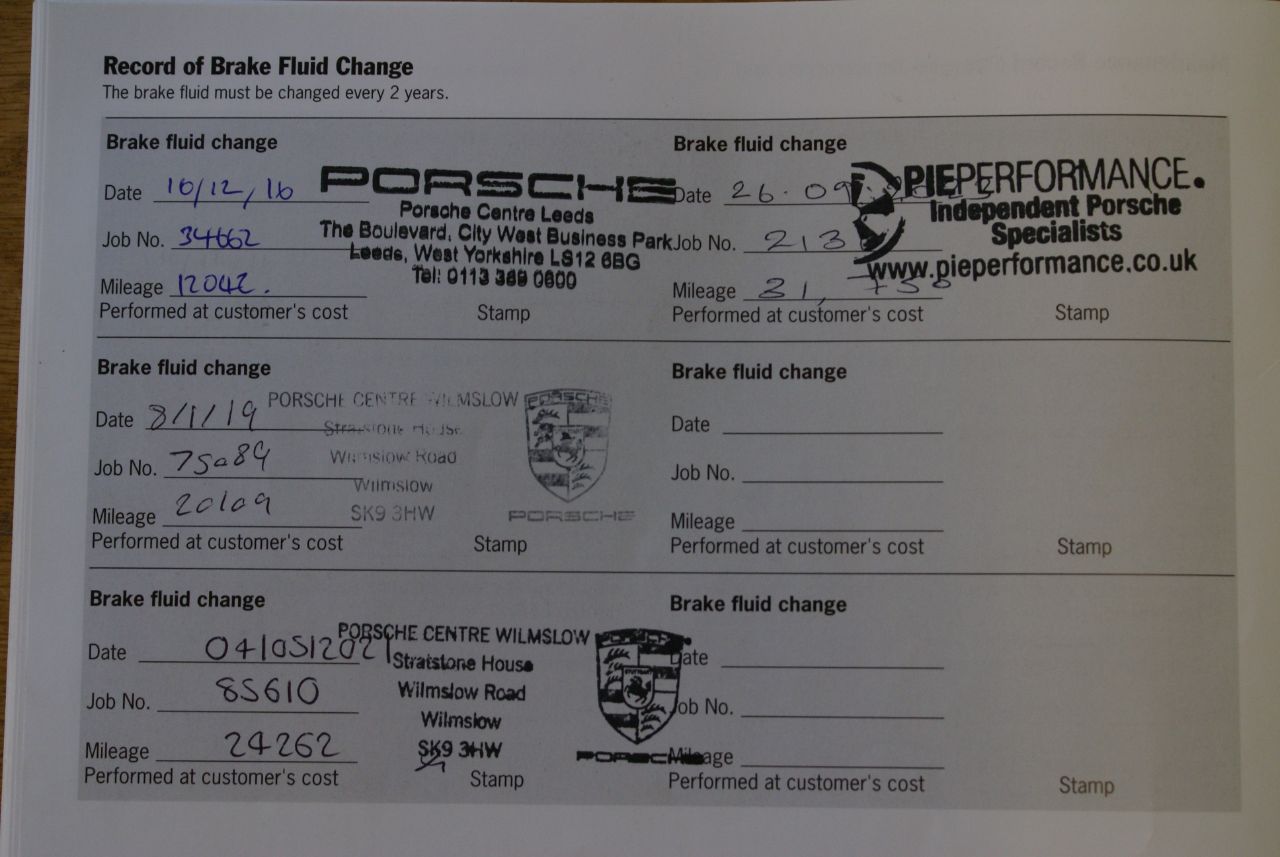 Record of Brake Fluid Change
The brake fluid must be changed every 2 years.
Brake fluid change
Date 10/12/16
Job No. 34662
Mileage 12042.
Performed at customer's cost
PORSCHE
Porsche Centre Leeds
The Boulevard, City West Business Park
Leeds, West Yorkshire LS12 6BG
Tel: 0113 389 0600
Stamp
Brake fluid change
Date 26.09.
Job No. 213
Mileage 31, 750
Performed at customer's cost
PIEPERFORMANCE.
Independent Porsche
Specialists
www.pieperformance.co.uk
Stamp
Brake fluid change
Date 8/1/19
Job No. 75089
Mileage 20109
Performed at customer's cost
PORSCHE CENTRE WILMSLOW
Stratstone House
Wilmslow Road
Wilmslow
SK9 3HW
PORSCHE
PORSCHE
Stamp
Brake fluid change
Date
Job No.
Mileage
Performed at customer's cost
Stamp
Brake fluid change
Date 04/05/2021
Job No. 85610
Mileage 24262
Performed at customer's cost
PORSCHE CENTRE WILMSLOW
Stratstone House
Wilmslow Road
Wilmslow
SK9 3HW
PORSCHE
Stamp
Brake fluid change
Date
Job No.
Mileage
Performed at customer's cost
Stamp